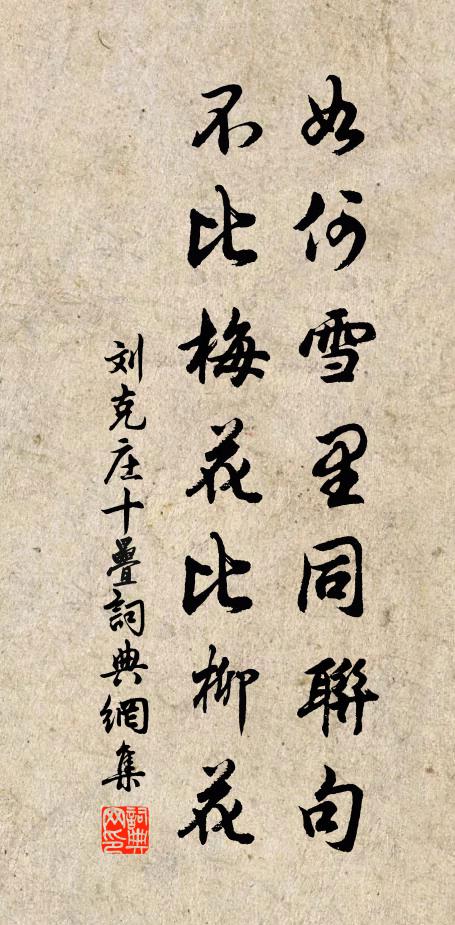 如何雪里同聯句
不比梅花比柳花
刘克庄十疊詞典網集
詞典网印